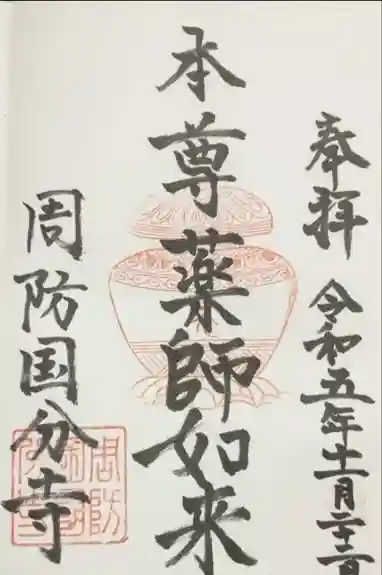 奉拝 令和五年十一月二十二日
本尊薬師如来
周防国分寺